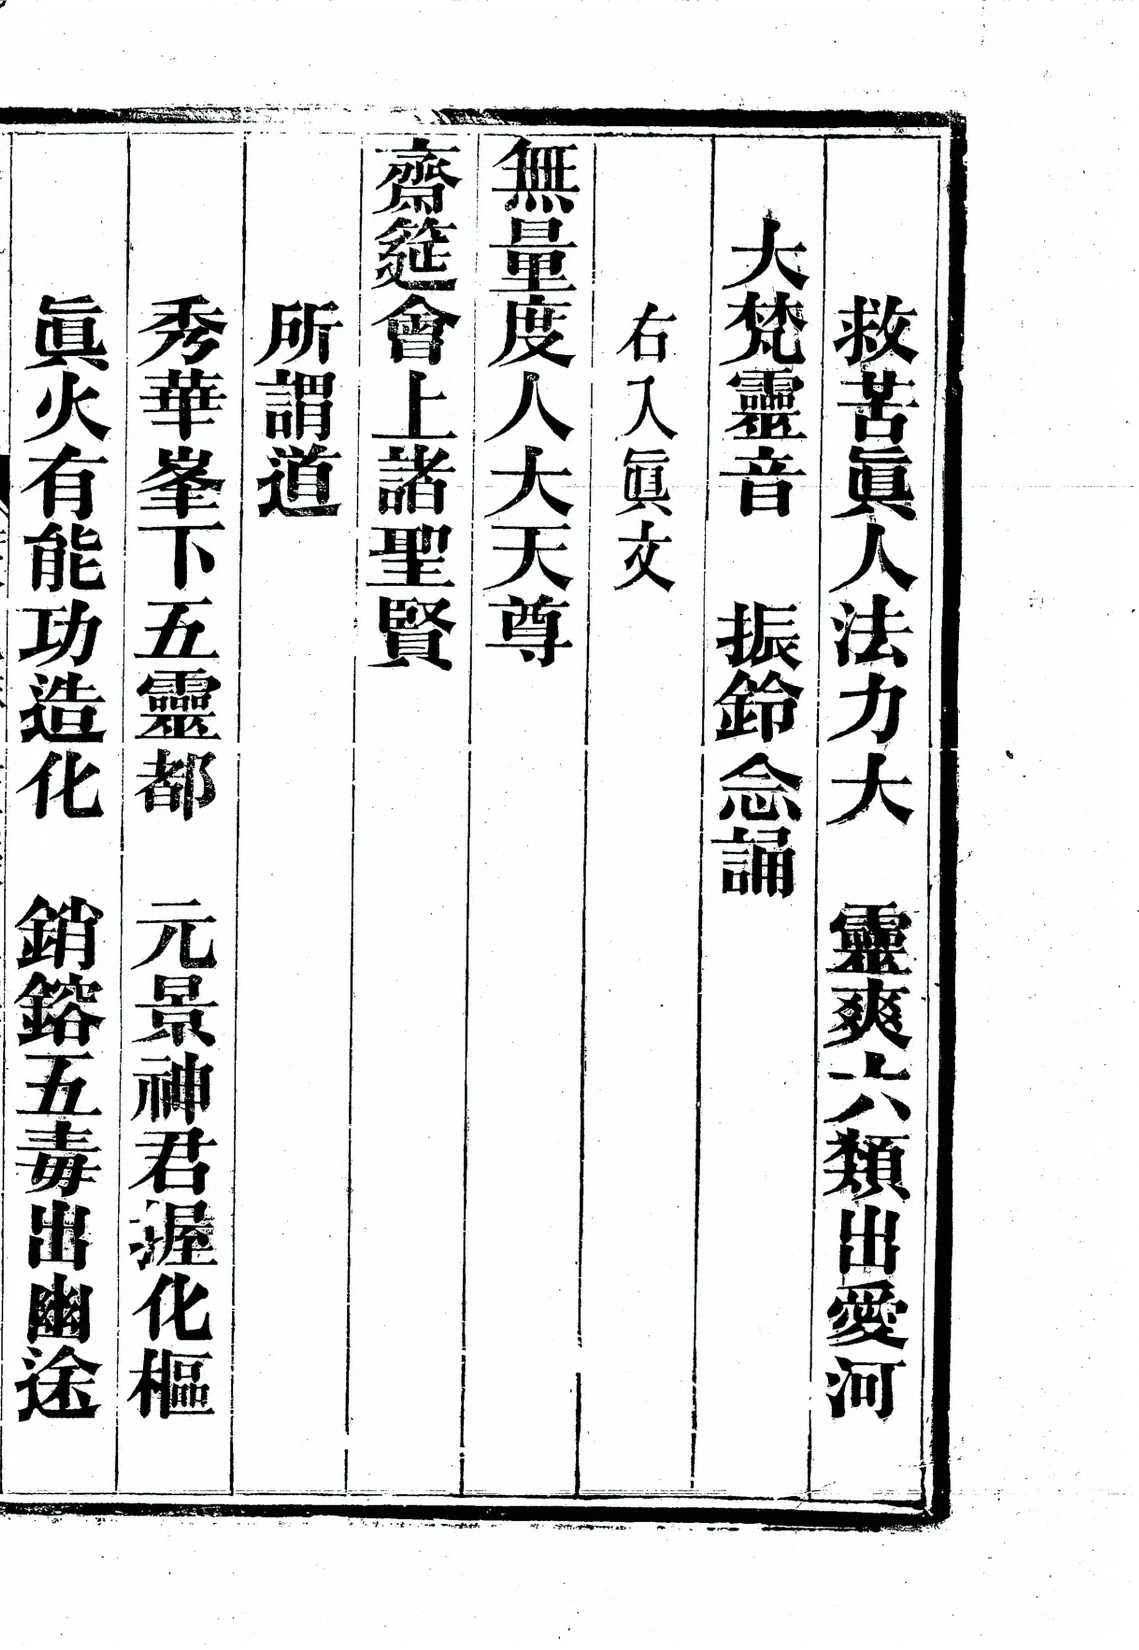 救苦眞人法力大　靈爽六類出愛河
大梵靈音　振鈴念誦
右入眞文
無量度人大天尊
齋筵會上諸聖賢
所謂道
秀華峯下五靈都　元景神君握化樞
眞火有能功造化　銷鎔五毒出幽途